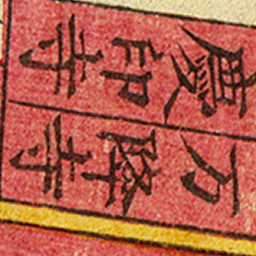 慶印寺
万隆寺